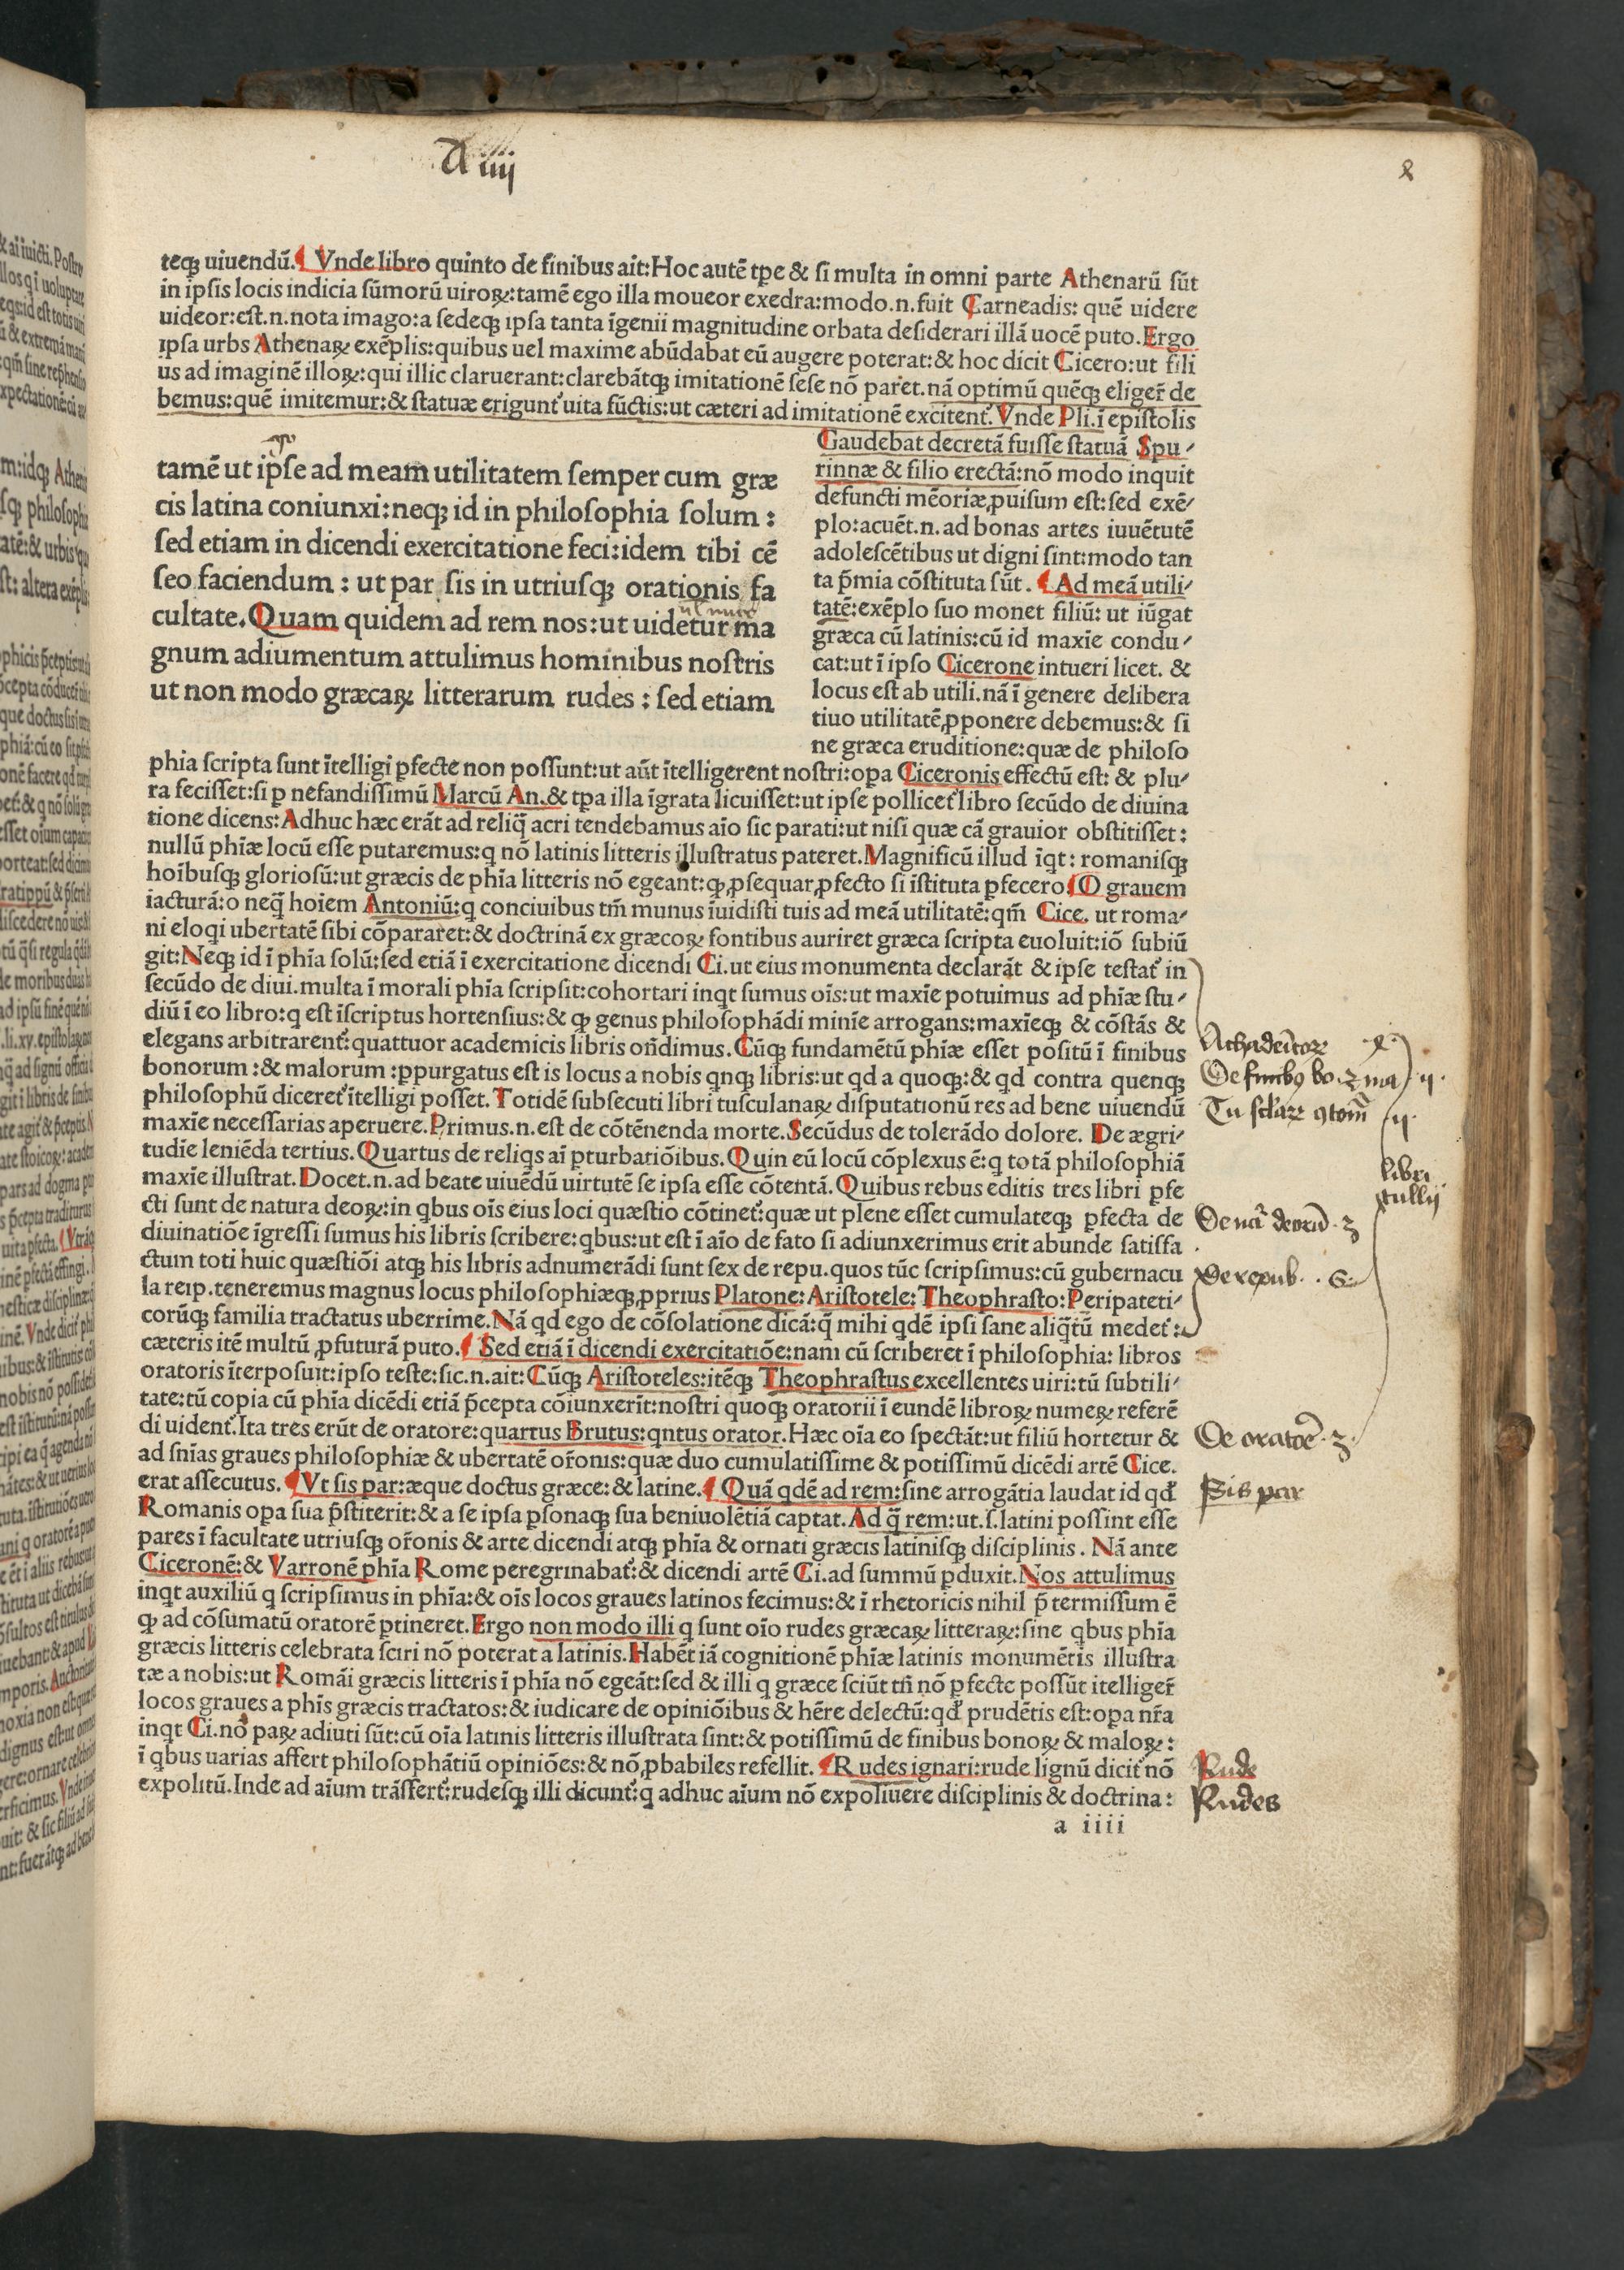 A iiij
teqꝫ uiuendũ. Vnde libro quinto de finibus ait: Hoc autẽ tꝑe & si multa in omni parte Athenarũ sũt
in ipsis locis indicia sũmorũ uiroꝝ: tamẽ ego illa moueor exedra: modo .n. fuit Carneadis: quẽ uidere
uideor: est .n. nota imago: a sedeqꝫ ipsa tanta ĩgenii magnitudine orbata desiderari illã uocẽ puto. Ergo
ipsa urbs Athenaꝝ exẽplis: quibus uel maxime abũdabat eũ augere poterat: & hoc dicit Cicero: ut fili
us ad imaginẽ illoꝝ: qui illic claruerant: clarebãtqꝫ imitationẽ sese nõ paret. nã optimũ quẽqꝫ eliger̃ de
bemus: quẽ imitemur: & statuæ erigunt᷑ uita fũctis: ut cæteri ad imitationẽ excitent᷑. Vnde Pli. ĩ epistolis
tamẽ ut ipse ad meam utilitatem semper cum græ
cis latina coniunxi: neqꝫ id in philosophia solum:
sed etiam in dicendi exercitatione feci: idem tibi cẽ
seo faciendum: ut par sis in utriusqꝫ orationis fa
cultate. Quam quidem ad rem nos: ut uidetur ma
gnum adiumentum attulimus hominibus nostris
ut non modo græcaꝝ litterarum rudes: sed etiam
Gaudebat decretã fuisse statuã Spu-
rinnæ & filio erectã: nõ modo inquit
defuncti mẽoriæ ꝓuisum est: sed exẽ-
plo: acuẽt .n. ad bonas artes iuuẽtutẽ
adolescẽtibus ut digni sint: modo tan
ta p̃mia cõstituta sũt. Ad meã utili-
tatẽ: exẽplo suo monet filiũ: ut iũgat
græca cũ latinis: cũ id maxĩe condu-
cat: ut ĩ ipso Cicerone intueri licet. &
locus est ab utili. nã ĩ genere delibera
tiuo utilitatẽ ꝓponere debemus: & si
ne græca eruditione: quæ de philoso
phia scripta sunt ĩtelligi ꝑfecte non possunt: ut aũt ĩtelligerent nostri: opa Ciceronis effectũ est: & plu-
ra fecisset: si ꝑ nefandissimũ Marcũ An. & tꝑa illa ĩgrata licuisset: ut ipse pollicet᷑ libro secũdo de diuina
tione dicens: Adhuc hæc erãt ad reliq̃ acri tendebamus aĩo sic parati: ut nisi quæ cã grauior obstitisset:
nullũ phĩæ locũ esse putaremus: q nõ latinis litteris illustratus pateret. Magnificũ illud ĩqt: romanisqꝫ
hoĩbusqꝫ gloriosũ: ut græcis de phĩa litteris nõ egeant: qꝫ ꝓsequar ꝓfecto si ĩstituta ꝑfecero. O grauem
iacturã: o neq̃ hoĩem Antoniũ: q conciuibus tm̃ munus ĩuidisti tuis ad meã utilitatẽ: qm̃ Cice. ut roma-
ni eloqi ubertatẽ sibi cõpararet: & doctrinã ex græcoꝝ fontibus auriret græca scripta euoluit: iõ subiũ
git: Neqꝫ id ĩ phĩa solũ: sed etiã ĩ exercitatione dicendi Ci. ut eius monumenta declarãt & ipse testat᷑ in
secũdo de diui. multa ĩ morali phĩa scripsit: cohortari inqt sumus oĩs: ut maxĩe potuimus ad phĩæ stu-
diũ ĩ eo libro: q est ĩscriptus hortensius: & qꝫ genus philosophãdi minĩe arrogans: maxĩeqꝫ & cõstãs &
elegans arbitrarent᷑: quattuor academicis libris oñdimus. Cũqꝫ fundamẽtũ phĩæ esset positũ ĩ finibus
bonorum: & malorum: ꝑpurgatus est is locus a nobis qnqꝫ libris: ut qd a quoqꝫ: & qd contra quenqꝫ
philosophũ diceret᷑ ĩtelligi posset. Totidẽ subsecuti libri tusculanaꝝ disputationũ res ad bene uiuendũ
maxĩe necessarias aperuere. Primus .n. est de cõtẽnenda morte. Secũdus de tolerãdo dolore. De ægri-
tudĩe leniẽda tertius. Quartus de reliqs aĩ ꝑturbatiõibus. Quin eũ locũ cõplexus ẽ: q totã philosophiã
maxĩe illustrat. Docet .n. ad beate uiuẽdũ uirtutẽ se ipsa esse cõtentã. Quibus rebus editis tres libri ꝑfe
cti sunt de natura deoꝝ: in qbus oĩs eius loci quæstio cõtinet᷑: quæ ut plene esset cumulateqꝫ ꝑfecta de
diuinatiõe ĩgressi sumus his libris scribere: qbus: ut est ĩ aĩo de fato si adiunxerimus erit abunde satisfa
ctum toti huic quæstiõi atqꝫ his libris adnumerãdi sunt sex de repu. quos tũc scripsimus: cũ gubernacu
la reip. teneremus magnus locus philosophiæqꝫ ꝓprius Platone: Aristotele: Theophrasto: Peripateti-
corũqꝫ familia tractatus uberrime. Nã qd ego de cõsolatione dicã: q̃ mihi qdẽ ipsi sane aliq̃tũ medet᷑:
cæteris itẽ multũ ꝓfuturã puto. Sed etiã ĩ dicendi exercitatiõe: nam cũ scriberet ĩ philosophia: libros
oratoris ĩterposuit: ipso teste: sic .n. ait: Cũqꝫ Aristoteles: itẽqꝫ Theophrastus excellentes uiri: tũ subtili-
tate: tũ copia cũ phĩa dicẽdi etiã p̃cepta cõiunxerĩt: nostri quoqꝫ oratorii ĩ eundẽ libroꝝ numeꝝ referẽ
di uident᷑. Ita tres erũt de oratore: quartus Brutus: qntus orator. Hæc oĩa eo spectãt: ut filiũ hortetur &
ad sñias graues philosophiæ & ubertatẽ or̃onis: quæ duo cumulatissime & potissimũ dicẽdi artẽ Cice.
erat assecutus. Vt sis par: æque doctus græce: & latine. Quã qdẽ ad rem: sine arrogãtia laudat id qd᷑
Romanis opa sua p̃stiterit: & a se ipsa ꝑsonaqꝫ sua beniuolẽtiã captat. Ad q̃ rem: ut .s. latini possint esse
pares ĩ facultate utriusqꝫ or̃onis & arte dicendi atqꝫ phĩa & ornati græcis latinisqꝫ disciplinis. Nã ante
Ciceronẽ: & Varronẽ phĩa Rome peregrinabat᷑: & dicendi artẽ Ci. ad summũ ꝑduxit. Nos attulimus
inqt auxiliũ q scripsimus in phĩa: & oĩs locos graues latinos fecimus: & ĩ rhetoricis nihil p̃termissum ẽ
qꝫ ad cõsumatũ oratorẽ ꝑtineret. Ergo non modo illi q sunt oĩo rudes græcaꝝ litteraꝝ: sine qbus phĩa
græcis litteris celebrata sciri nõ poterat a latinis. Habẽt iã cognitionẽ phĩæ latinis monumẽtis illustra
tæ a nobis: ut Romãi græcis litteris ĩ phĩa nõ egeãt: sed & illi q græce sciũt tñ nõ ꝑfecte possũt itelliger̃
locos graues a phĩs græcis tractatos: & iudicare de opiniõibus & hẽre delectũ: qd᷑ prudẽtis est: opa nr̃a
inqt Ci. nõ paꝝ adiuti sũt: cũ oĩa latinis litteris illustrata sint: & potissimũ de finibus bonoꝝ & maloꝝ:
ĩ qbus uarias affert philosophãtiũ opiniões: & nõ ꝓbabiles refellit. Rudes ignari: rude lignũ dicit᷑ nõ
expolitũ. Inde ad aĩum trãsfert᷑: rudesqꝫ illi dicunt᷑: q adhuc aĩum nõ expoliuere disciplinis & doctrina:
a iiii
libri
tullij
De oratorẽ 3
Sis par
Rude
Rudes